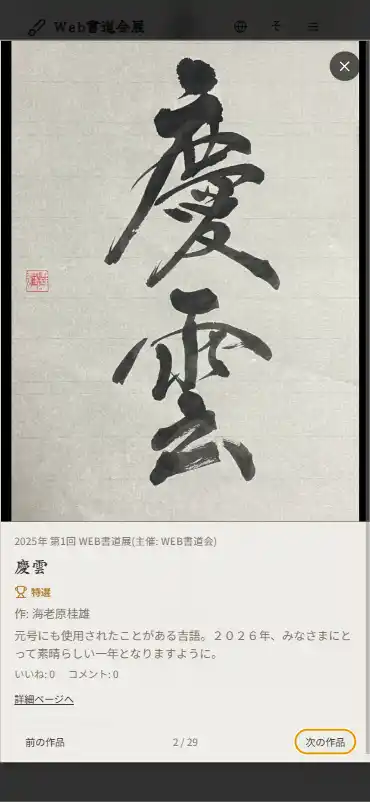 Web書道会展
慶雲
2025年 第1回 WEB書道展(主催: WEB書道会)
慶雲
特選
作: 海老原桂雄
元号にも使用されたことがある吉語。２０２６年、みなさまにと
って素晴らしい一年となりますように。
いいね: 0 コメント: 0
詳細ページへ
前の作品
2 / 29
次の作品